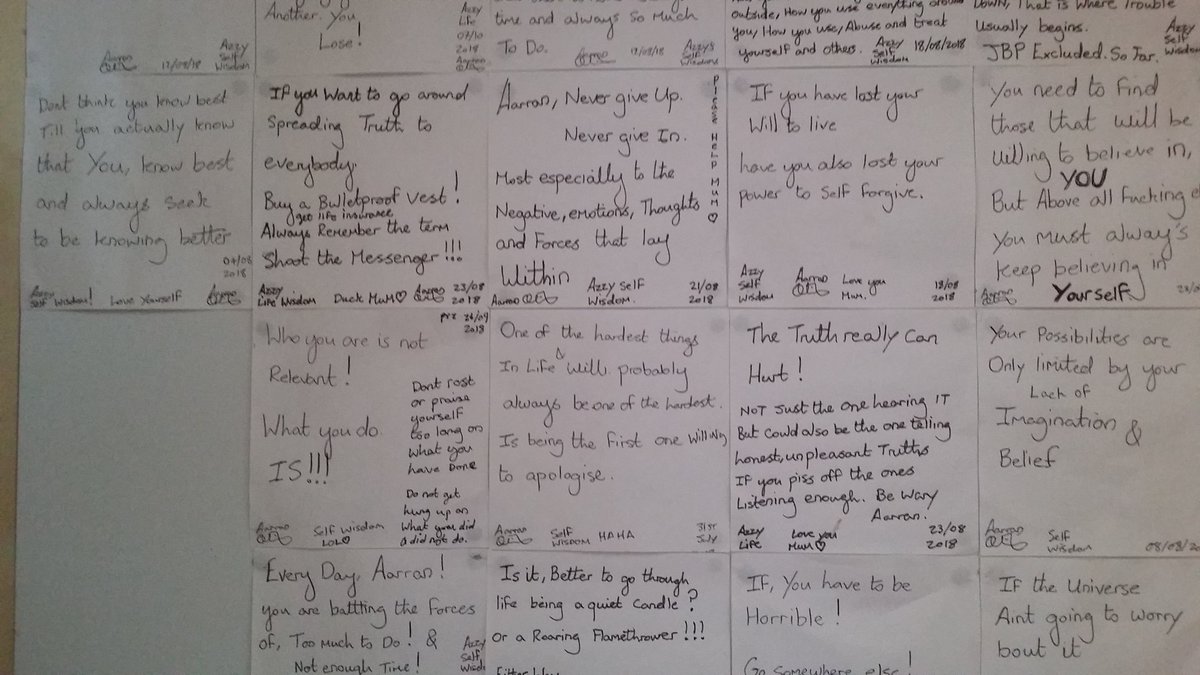 Another. You
Lose!
Azzy
Life
07/10
2018
Aarran
Aarran
17/08/18
Azzy
Self
Wisdom
time and always so much
To Do.
17/08/18
Azzy's
Self
Wisdom
outside, How you use everything around
you, How you use, Abuse and treat
yourself and others.
Azzy
Self
Wisdom
18/08/2018
Down, That is where Trouble
Usually begins.
JBP Excluded. So Far.
Azzy
Self
Wisdom
Dont think you know best
Till you actually know
that You, know best
and always seek
to be knowing better
04/08
2018
Azzy
Self Wisdom!
Love Yourself
If you Want to go around
Spreading Truth to
everybody.
Buy a Bulletproof Vest!
get life insurance
Always Remember the term
Shoot the Messenger!!!
Azzy
Life Wisdom
Duck Mum♡
Aarran
23/08
2018
Aarran, Never give Up.
Never give In.
Most especially to the
Negative, emotions, Thoughts
and Forces that lay
Within
Please Help Mum ♡
Aarran
Azzy Self
Wisdom.
21/08
2018
If you have lost your
Will to live
have you also lost your
power to Self forgive.
Azzy
Self
Wisdom
Aarran
Love you
Mum.
18/08
2018
You need to Find
those that will be
willing to believe in,
YOU
But Above all Fucking
You must alway's
Keep believing in
Yourself
Aarran
26/09
2018
Who you are is not
Relevant!
What you do
IS!!!
Dont rost
or praise
yourself
too long on
What you
have Done
Do not get
hung up on
What you did
a did not do.
Aarran
Self Wisdom
LOL♡
One of the hardest things
In Life & will probably
always be one of the hardest.
Is being the first one Willing
to apologise.
Aarran
Self
Wisdom HAHA
31st
July
The Truth really Can
Hurt!
Not Just the one hearing IT
But Could also be the one telling
honest, unpleasant Truths
If you piss off the ones
Listening enough. Be Wary
Aarran.
Azzy
Life
Love you
Mum♡
23/08
2018
Your Possibilities are
Only limited by your
Lack of
Imagination &
Belief
Aarran
Self
Wisdom
08/08/20
Every Day, Aarran!
you are battling the forces
of, Too Much to Do! &
Not enough Time!
Azzy
Self
Wisdom
Is it, Better to go through
life being a quiet Candle?
or a Roaring Flamethrower!!!
IF, You have to be
Horrible!
Go Somewhere else!
If the Universe
Aint going to worry
bout it